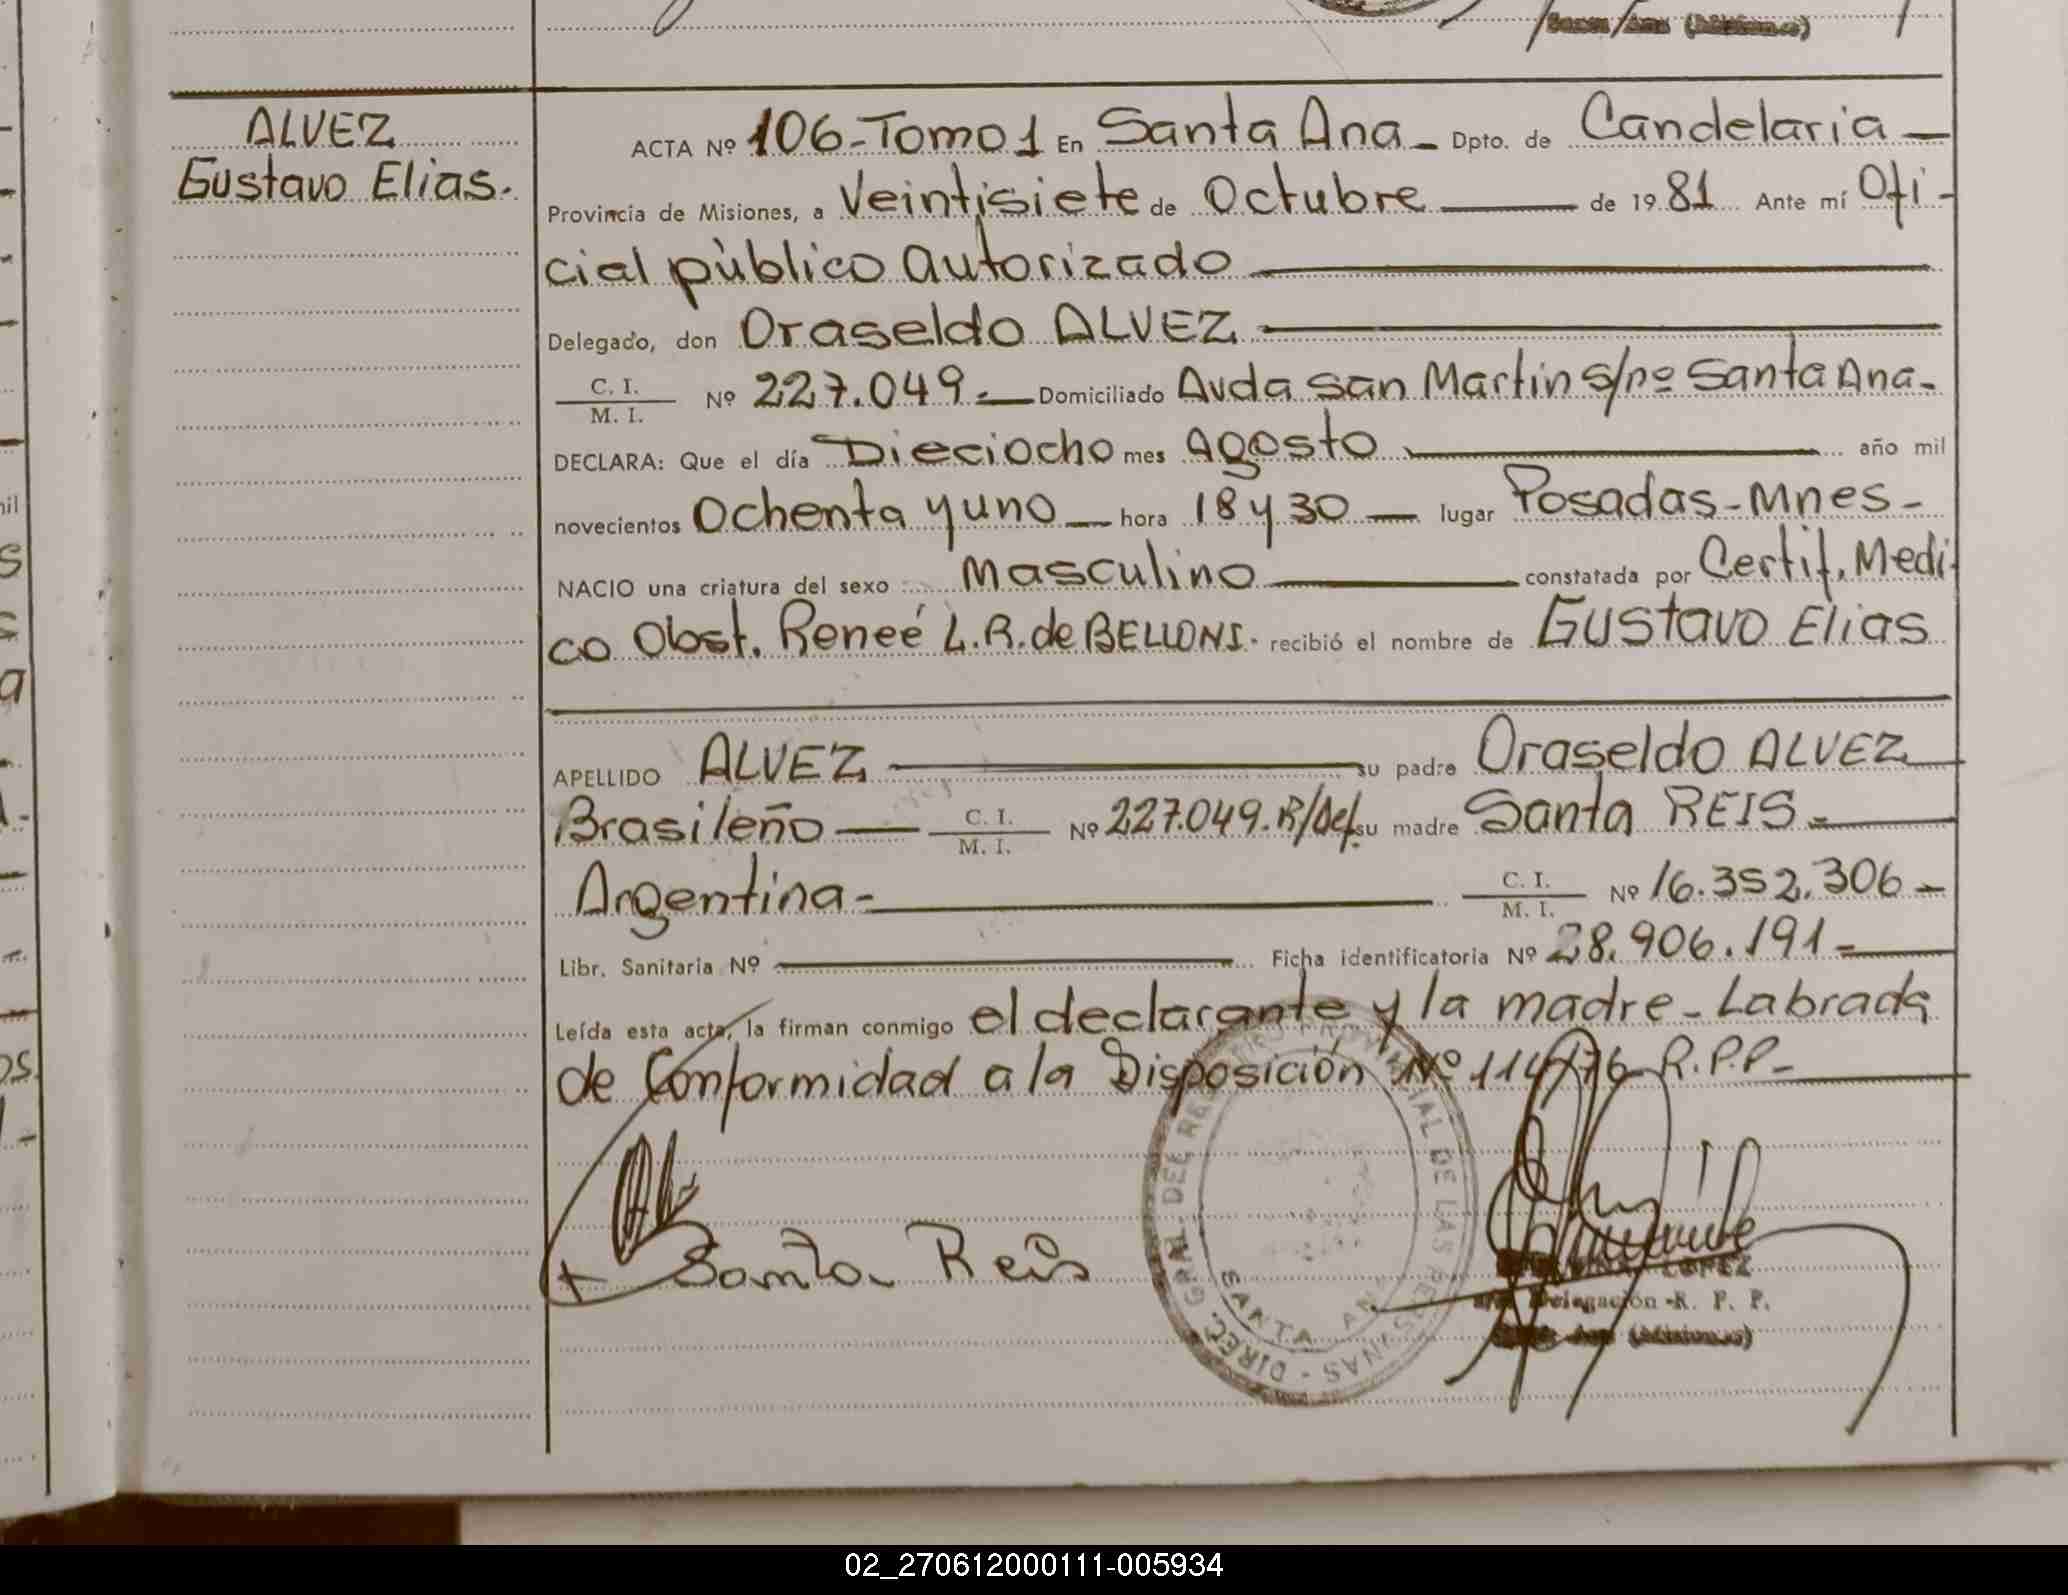 ALVEZ
Gustavo Elias.
ACTA Nº 106-Tomo 1 En Santa Ana - Dpto. de Candelaria -
Provincia de Misiones, a Veintisiete de Octubre de 1981 Ante mí Ofi-
cial pùblico autorizado
Delegado, don Oraseldo ALVEZ
C. I.
M. I. Nº 227.049.- Domiciliado Avda San Martin S/nº Santa Ana-
DECLARA: Que el día Dieciocho mes Agosto año mil
novecientos Ochenta y uno hora 18 y 30 lugar Posadas-Mnes-
NACIO una criatura del sexo Masculino constatada por Certif. Medi-
co Obst. Reneé L.R. de BELLONI. recibió el nombre de Gustavo Elias
APELLIDO ALVEZ su padre Oraseldo ALVEZ
Brasileño C. I.
M. I. Nº 227.049.R/Def. su madre Santa REIS-
Argentina- C. I.
M. I. Nº 16.352.306-
Libr. Sanitaria Nº Ficha identificatoria Nº 28.906.191-
Leída esta acta, la firman conmigo el declarante y la madre - Labrada
de Conformidad a la Disposición Nº R.P.P.-
Santa Reis
DIREC. GRAL. DEL REGISTRO PROVINCIAL DE LAS PERSONAS -
SANTA ANA
LOPEZ
Delegación R. P. P.
Ana (Misiones)
02_270612000111-005934